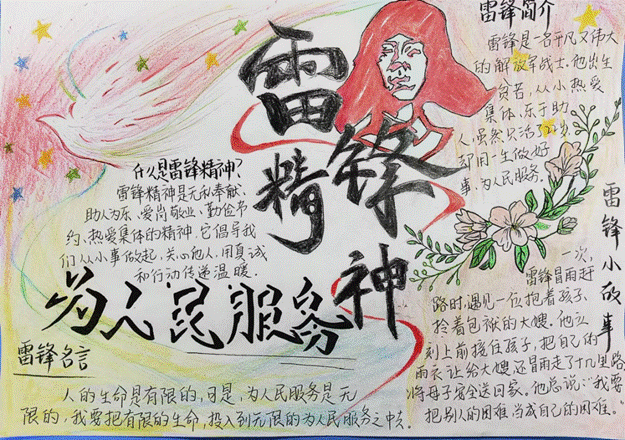 雷锋精神
为人民服务
什么是雷锋精神?
雷锋精神是无私奉献、
助人为乐、爱岗敬业、勤俭节
约、热爱集体的精神,它倡导我
们从小事做起,关心他人,用真诚
和行动传递温暖.
雷锋简介
雷锋是一名平凡又伟大
的解放军战士.他出生
贫苦,从小热爱
集体,乐于助
人,虽然只活了22岁,
却用一生做好
事,为人民服务.
雷锋小故事
一次,
雷锋冒雨赶
路时,遇见一位抱着孩子、
拎着包袱的大嫂.他立
刻上前接住孩子,把自己的
雨衣让给大嫂,还冒雨走了十几里路,
将母子安全送回家.他总说:“我要
把别人的困难当成自己的困难.”
雷锋名言
人的生命是有限的,可是,为人民服务是无
限的,我要把有限的生命,投入到无限的为人民服务之中去.